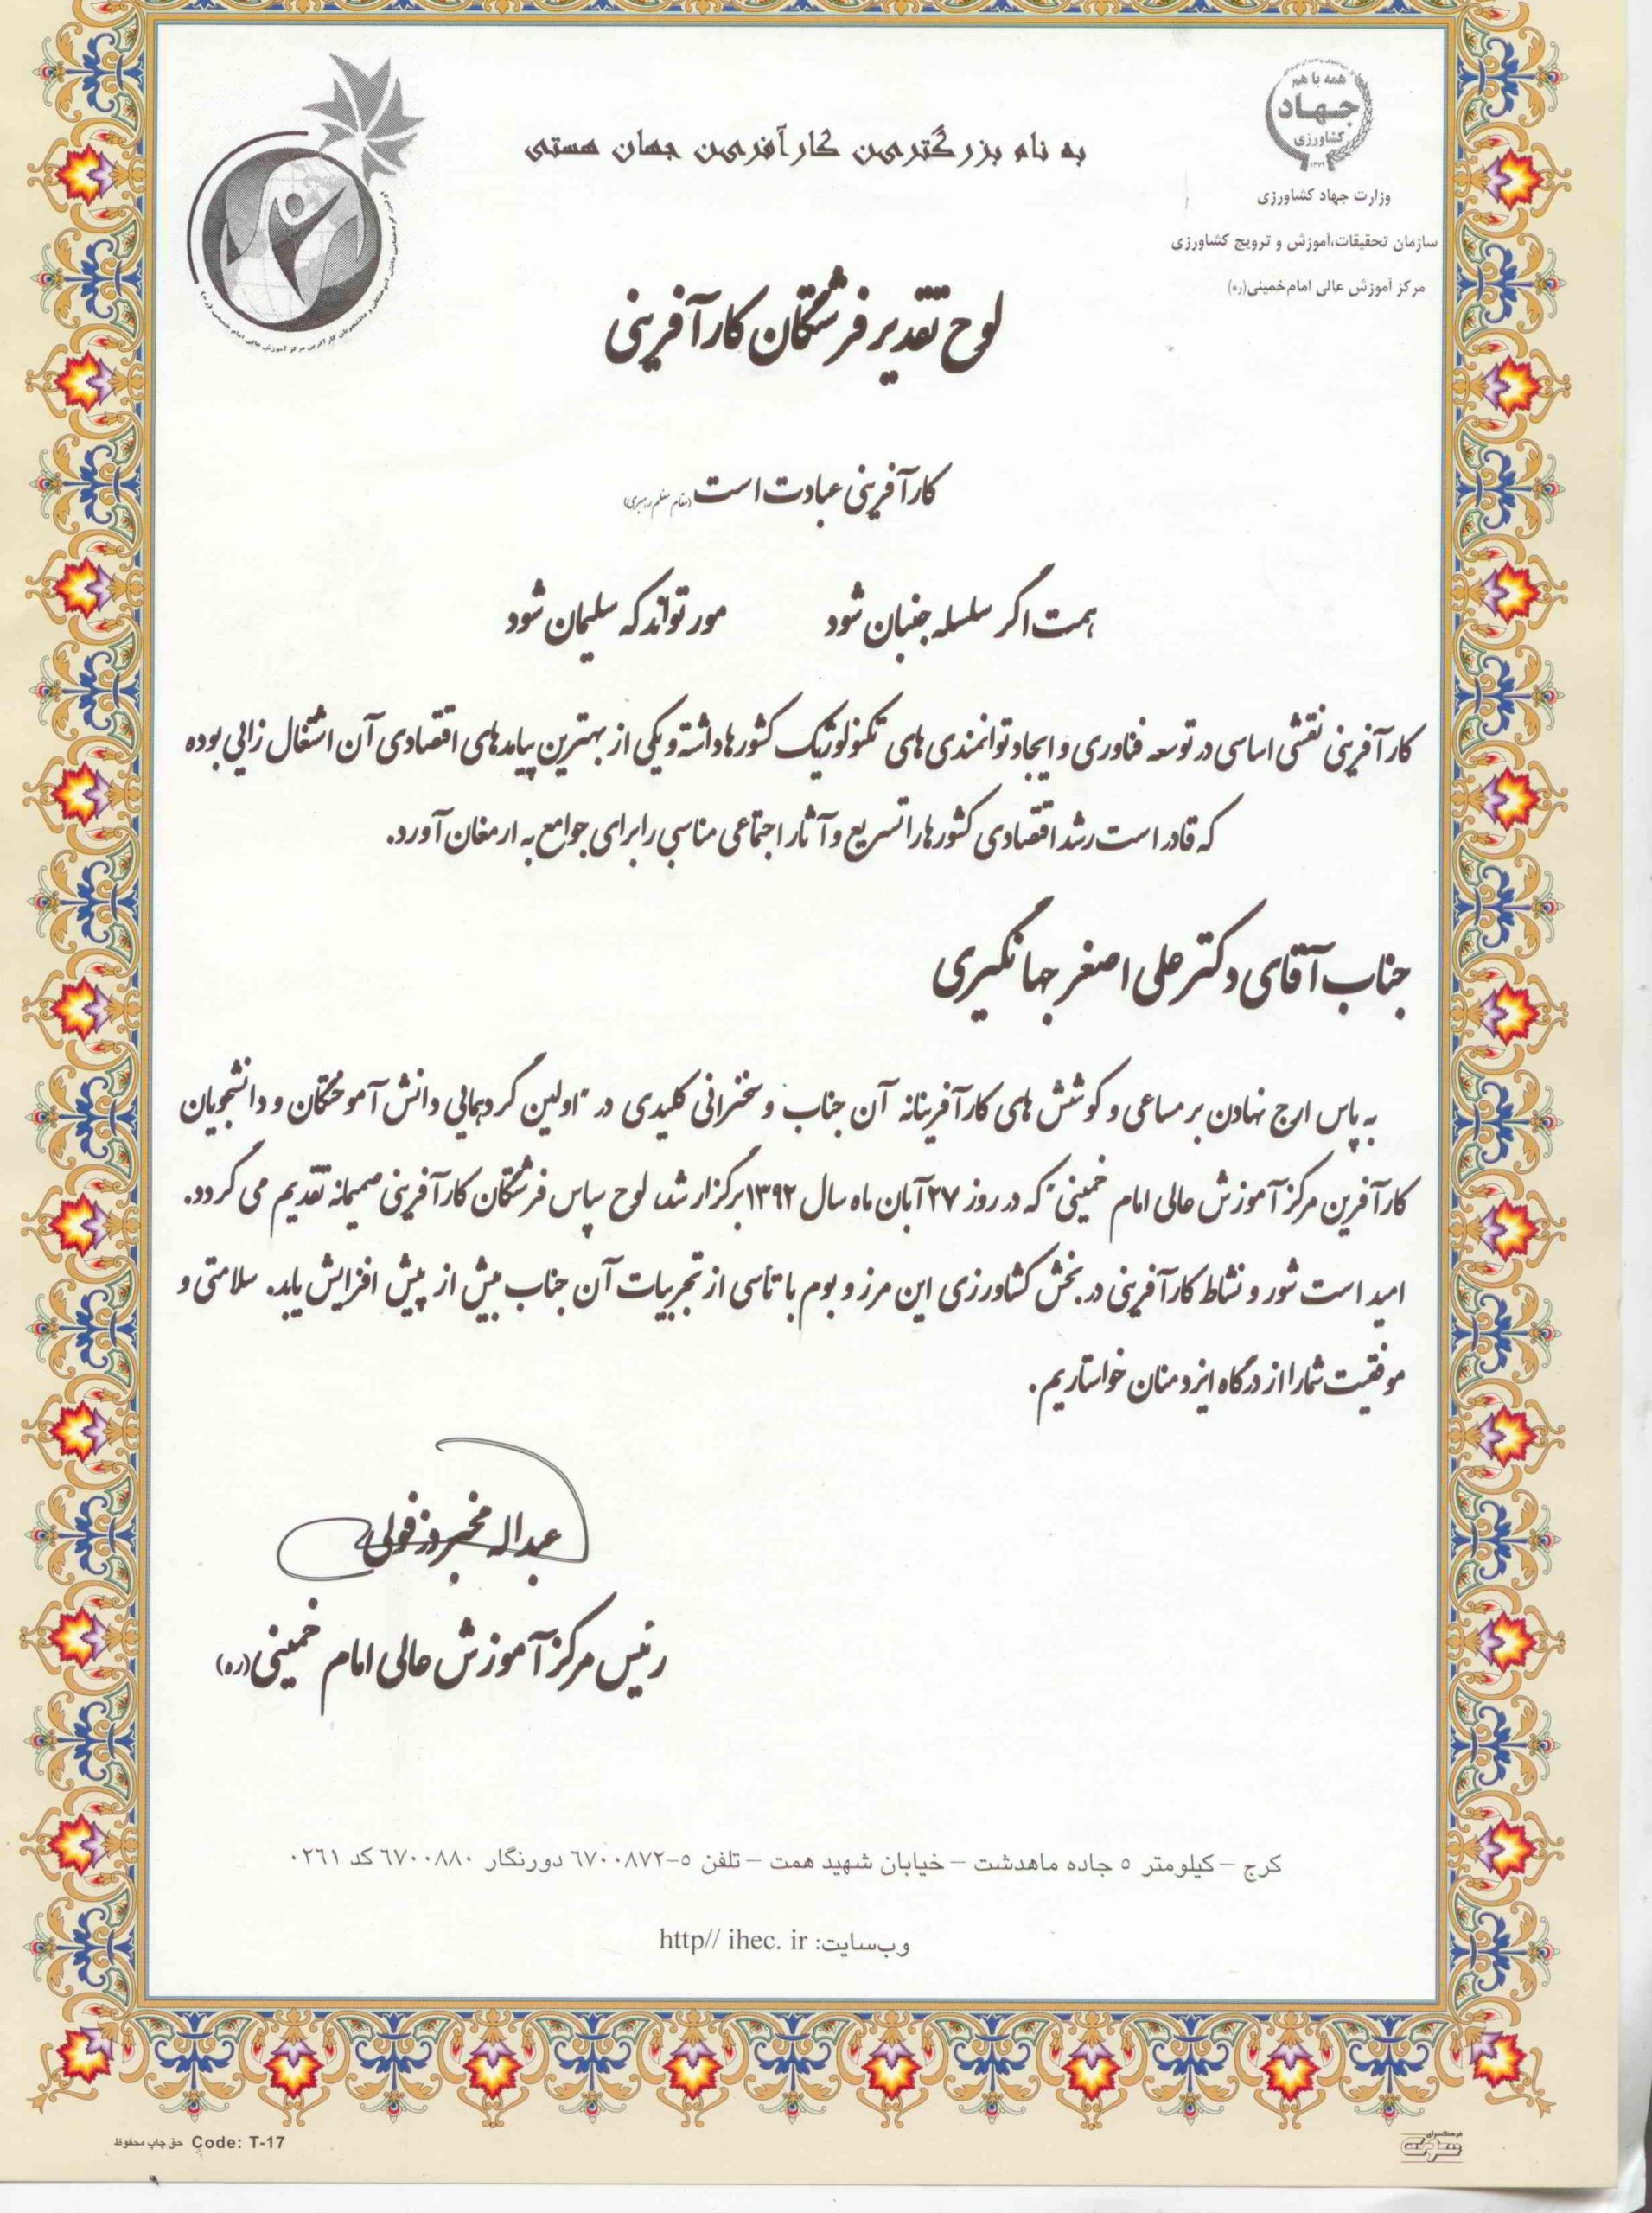 همه با هم
جهاد
کشاورزی
۱۳۷۹
وزارت جهاد کشاورزی
سازمان تحقیقات،آموزش و ترویج کشاورزی
مرکز آموزش عالی امام‌خمینی(ره)
به نام بزرگترین کارآفرین جهان هستی
لوح تقدیر فرشتگان کارآفرینی
کارآفرینی عبادت است (مقام معظم رهبری)
همت اگر سلسله جنبان شود مور تواند که سلیمان شود
کارآفرینی نقشی اساسی در توسعه فناوری و ایجاد توانمندی های تکنولوژیک کشورها داشته و یکی از بهترین پیامدهای اقتصادی آن اشتغال زائی بوده
که قادر است رشد اقتصادی کشورها را تسریع و آثار اجتماعی مناسبی را برای جوامع به ارمغان آورد.
جناب آقای دکتر علی اصغر جهانگیری
به پاس ارج نهادن بر مساعی و کوشش های کارآفرینانه آن جناب و سخنرانی کلیدی در "اولین گردهمائی دانش آموختگان و دانشجویان
کارآفرین مرکز آموزش عالی امام خمینی" که در روز ۲۷ آبان ماه سال ۱۳۹۲ برگزار شد، لوح سپاس فرشتگان کارآفرینی صمیمانه تقدیم می گردد.
امید است شور و نشاط کارآفرینی در بخش کشاورزی این مرز و بوم با تأسی از تجربیات آن جناب بیش از پیش افزایش یابد. سلامتی و
موفقیت شما را از درگاه ایزد منان خواستاریم.
عبداله مخبر دزفولی
رئیس مرکز آموزش عالی امام خمینی(ره)
کرج – کیلومتر ۵ جاده ماهدشت – خیابان شهید همت – تلفن ۵-۶۷۰۰۸۷۲ دورنگار ۶۷۰۰۸۸۰ کد ۰۲۶۱
وب‌سایت: http// ihec. ir
Code: T-17 حق چاپ محفوظ